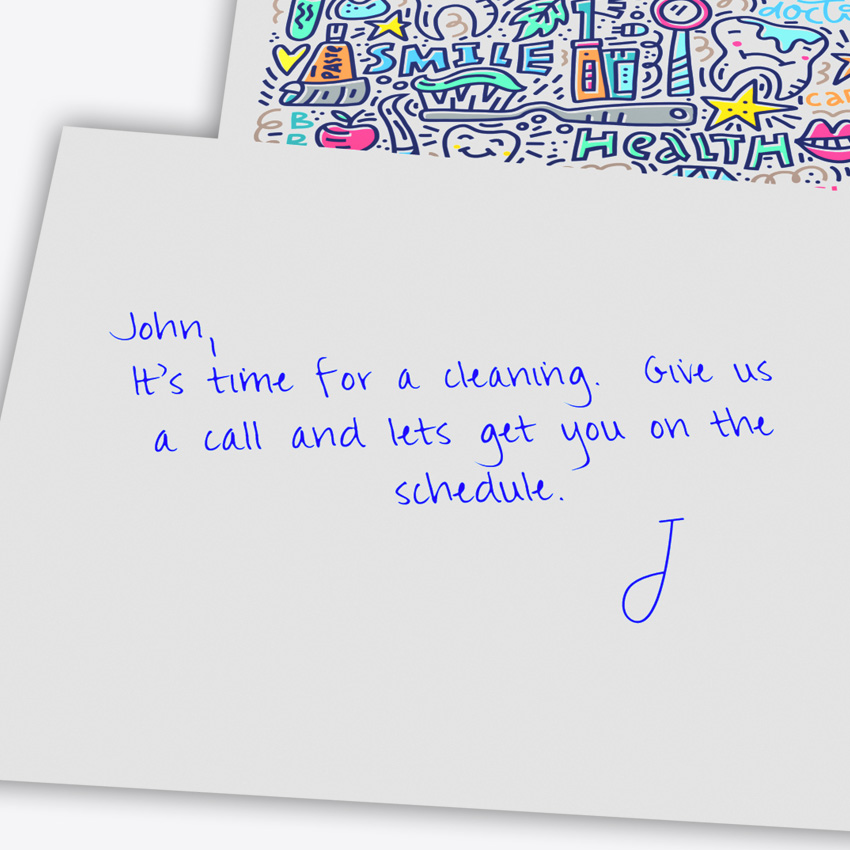 SMILE
PASTE
HEALTH
John,
It's time for a cleaning. Give us
a call and lets get you on the
schedule.
J